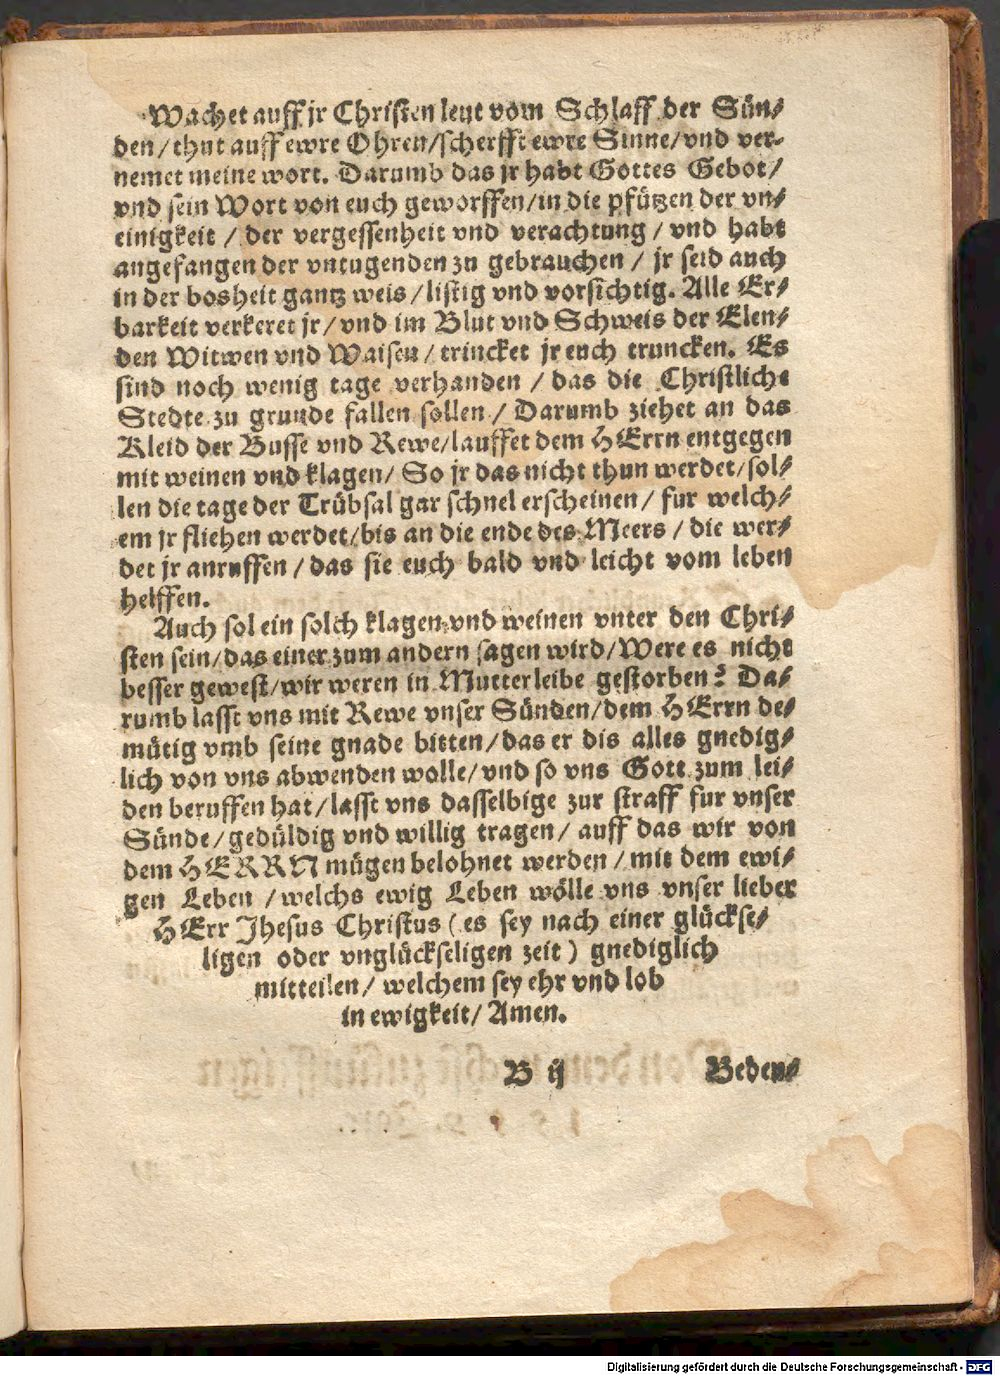 Wachet auff jr Christen leut vom Schlaff der Sün/
den/ thut auff ewre Ohren/scherfft ewre Sinne/vnd ver-
nemet meine wort. Darumb das jr habt Gottes Gebot/
vnd sein Wort von euch geworffen/in die pfützen der vn/
einigkeit / der vergessenheit vnd verachtung / vnd habt
angefangen der vntugenden zu gebrauchen / jr seid auch
in der bosheit gantz weis /listig vnd vorsichtig. Alle Er/
barkeit verkeret jr/ vnd im Blut vnd Schweis der Elen/
den Witwen vnd Waisen/ trincket jr euch truncken. Es
sind noch wenig tage verhanden / das die Christliche
Stedte zu grunde fallen sollen / Darumb ziehet an das
Kleid der Busse vnd Rewe/lauffet dem HErrn entgegen
mit weinen vnd klagen/ So jr das nicht thun werdet/sol/
len die tage der Trübsal gar schnel erscheinen/ fur welch/
em jr fliehen werdet/bis an die ende des Meers / die wer/
det jr anruffen / das sie euch bald vnd leicht vom leben
helffen.
Auch sol ein solch klagen vnd weinen vnter den Chri/
sten sein/das einer zum andern sagen wird/Were es nicht
besser gewest/wir weren in Mutterleibe gestorben? Da/
rumb lasst vns mit Rewe vnser Sünden/dem HErrn de/
mütig vmb seine gnade bitten/das er dis alles gnedig/
lich von vns abwenden wolle/ vnd so vns Gott zum lei/
den beruffen hat/lasst vns dasselbige zur straff fur vnser
Sünde/gedüldig vnd willig tragen/ auff das wir von
dem HERRN mügen belohnet werden / mit dem ewi/
gen Leben /welchs ewig Leben wölle vns vnser lieber
HErr Jhesus Christus ( es sey nach einer glückse/
ligen oder vnglückseligen zeit ) gnediglich
mitteilen/ welchem sey ehr vnd lob
in ewigkeit/ Amen.
B ij Beden/
Digitalisierung gefördert durch die Deutsche Forschungsgemeinschaft - DFG